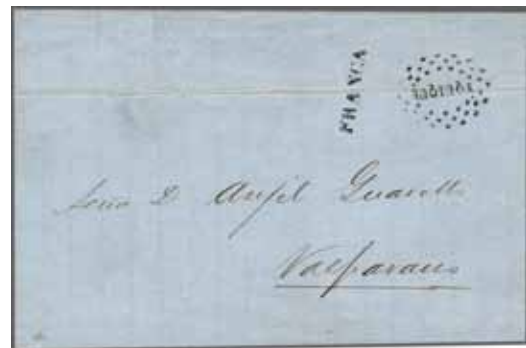 FRANCA
Señor D. Anjel Guarello
Valparaiso